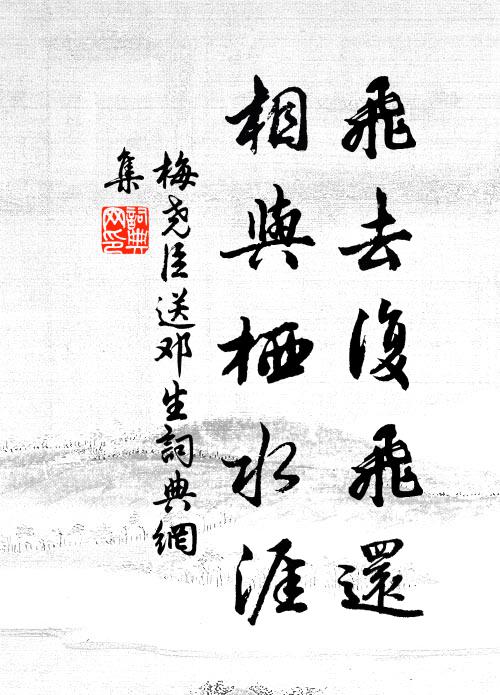 飛去復飛還
相與栖水涯
梅堯臣送邓生詞典網
集
詞典
网印